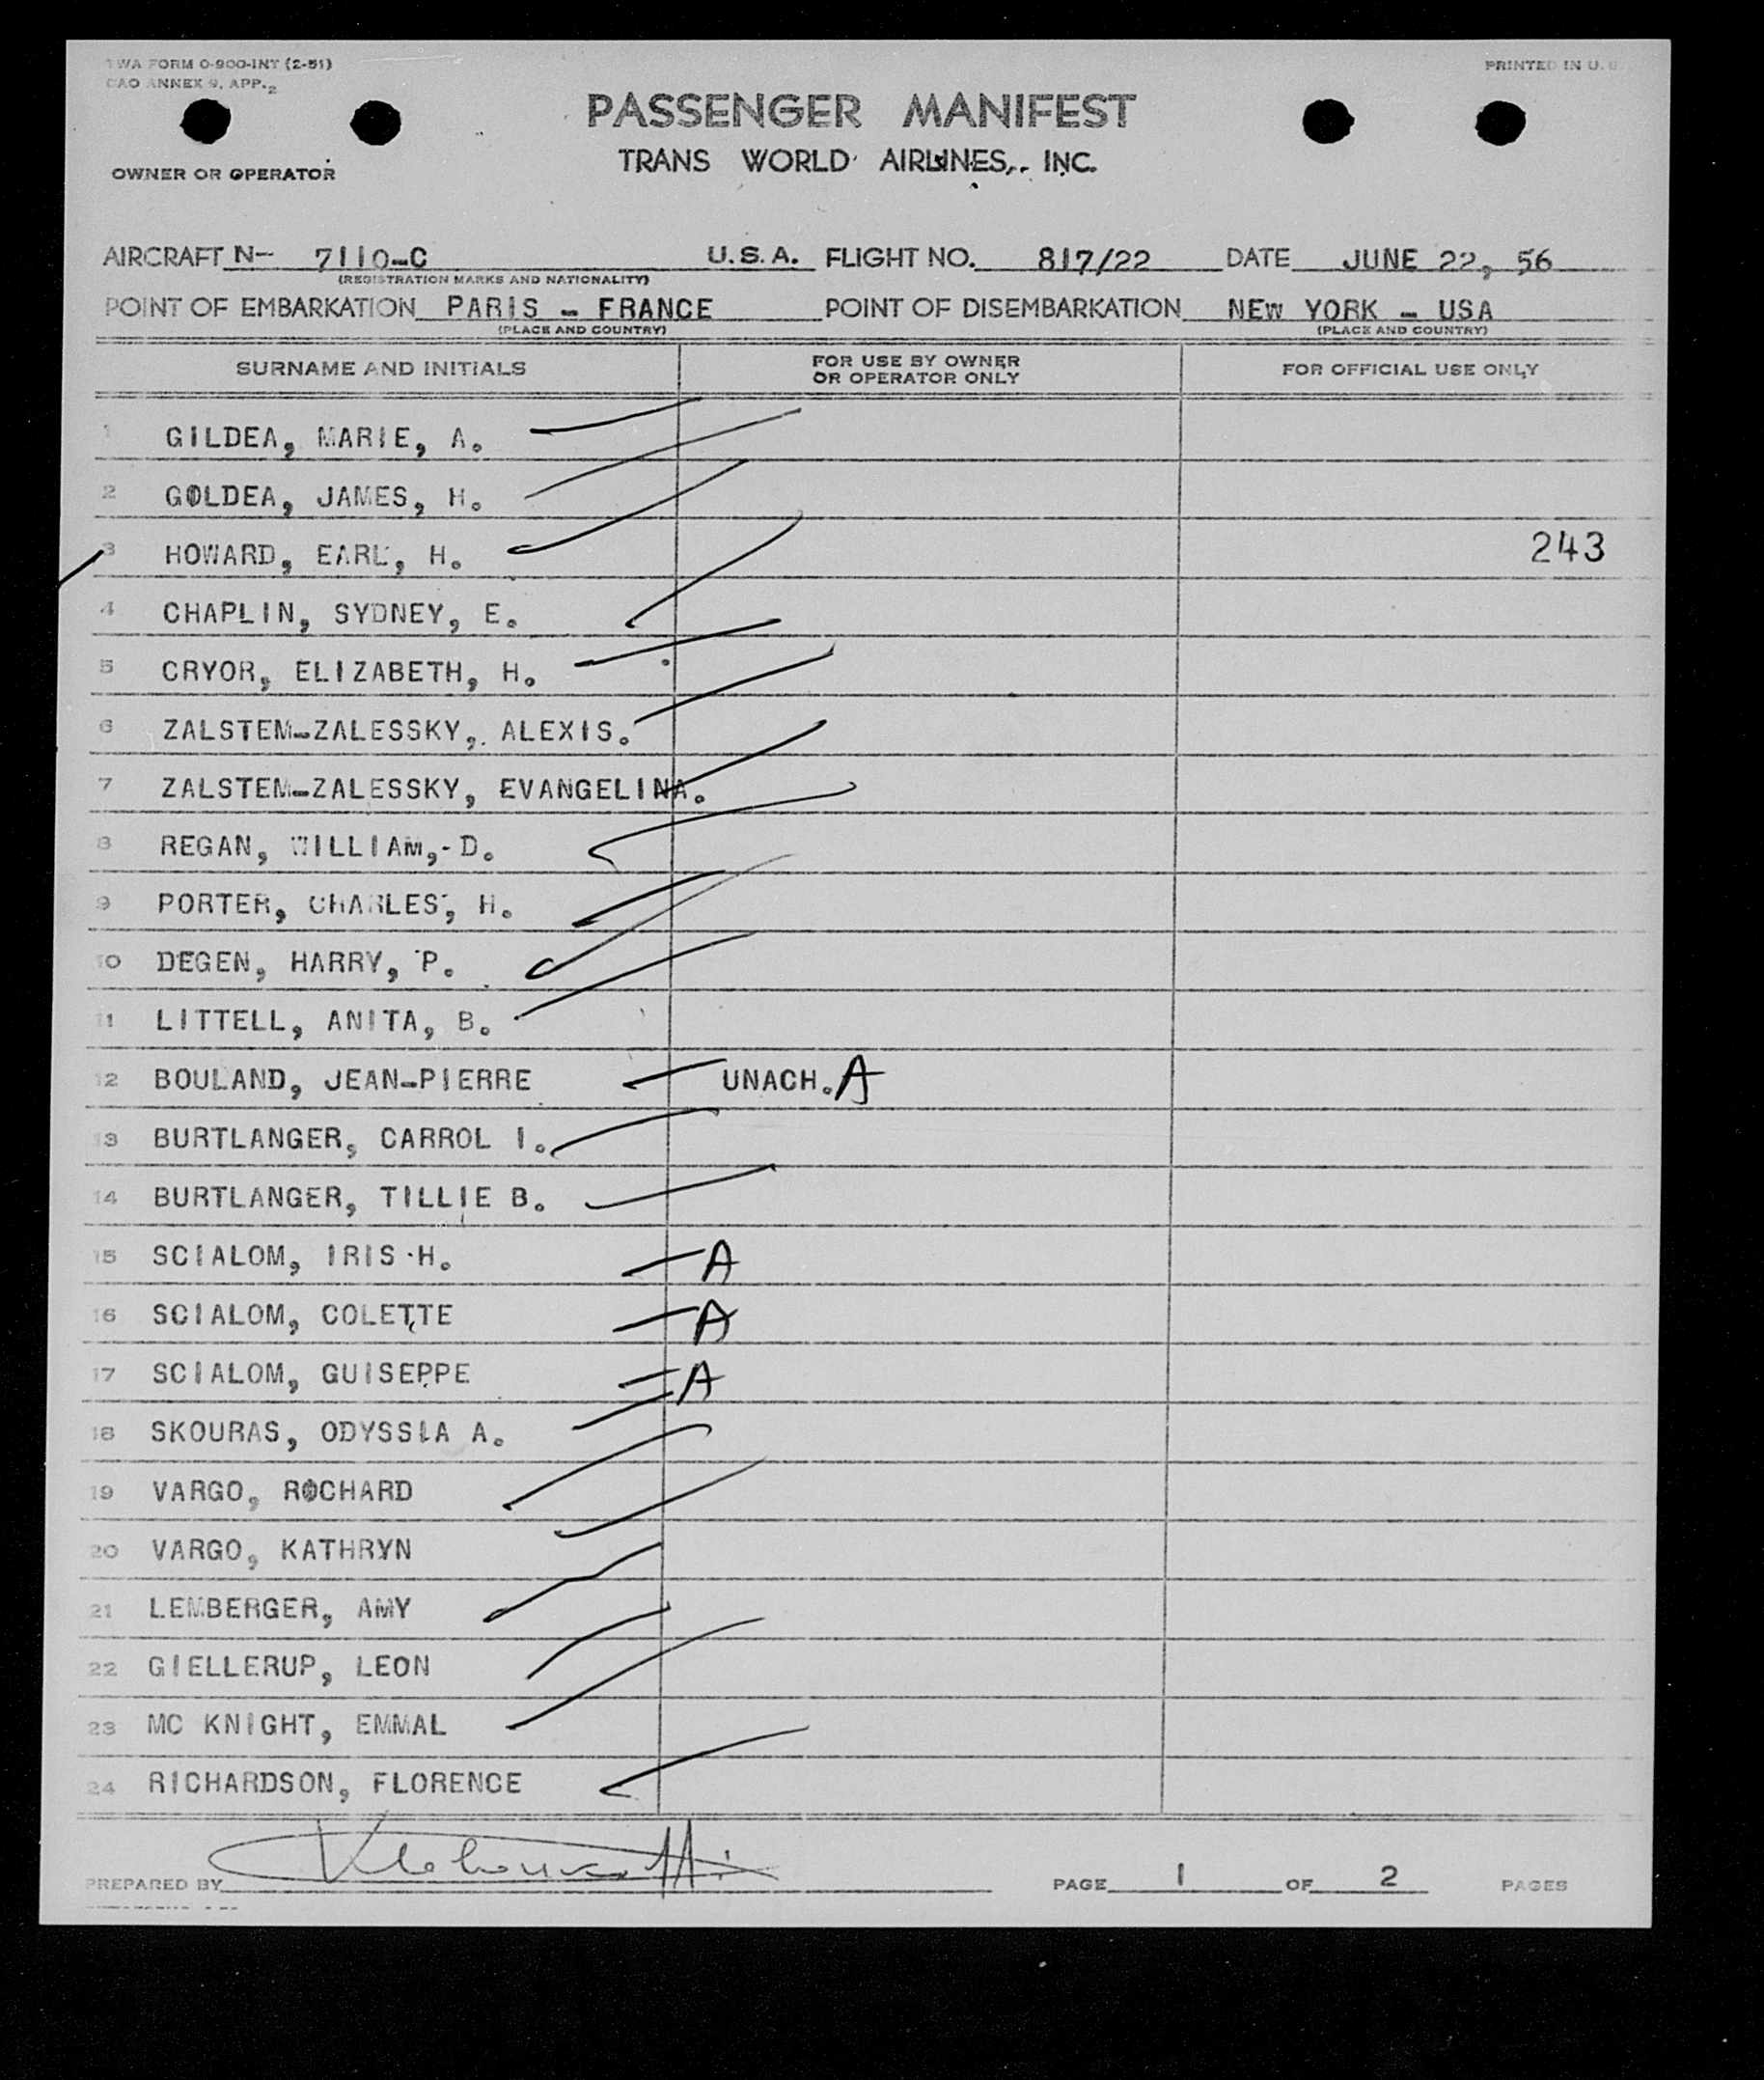 TWA FORM O-900-INT (2-51)
CAO ANNEX 9, APP. 2
PRINTED IN U. S.
PASSENGER MANIFEST
TRANS WORLD AIRLINES, INC.
OWNER OR OPERATOR
AIRCRAFT N- 7110-C U.S.A. FLIGHT NO. 817/22 DATE JUNE 22, 56
(REGISTRATION MARKS AND NATIONALITY)
POINT OF EMBARKATION PARIS - FRANCE POINT OF DISEMBARKATION NEW YORK - USA
(PLACE AND COUNTRY) (PLACE AND COUNTRY)
SURNAME AND INITIALS FOR USE BY OWNER OR OPERATOR ONLY FOR OFFICIAL USE ONLY
1 GILDEA, MARIE, A.
2 GOLDEA, JAMES, H.
3 HOWARD, EARL, H. 243
4 CHAPLIN, SYDNEY, E.
5 CRYOR, ELIZABETH, H.
6 ZALSTEM-ZALESSKY, ALEXIS.
7 ZALSTEM-ZALESSKY, EVANGELINA.
8 REGAN, WILLIAM,-D.
9 PORTER, CHARLES, H.
10 DEGEN, HARRY, P.
11 LITTELL, ANITA, B.
12 BOULAND, JEAN-PIERRE UNACH. A
13 BURTLANGER, CARROL I.
14 BURTLANGER, TILLIE B.
15 SCIALOM, IRIS H. A
16 SCIALOM, COLETTE A
17 SCIALOM, GUISEPPE A
18 SKOURAS, ODYSSIA A.
19 VARGO, ROCHARD
20 VARGO, KATHRYN
21 LEMBERGER, AMY
22 GIELLERUP, LEON
23 MC KNIGHT, EMMAL
24 RICHARDSON, FLORENCE
PREPARED BY PAGE 1 OF 2 PAGES